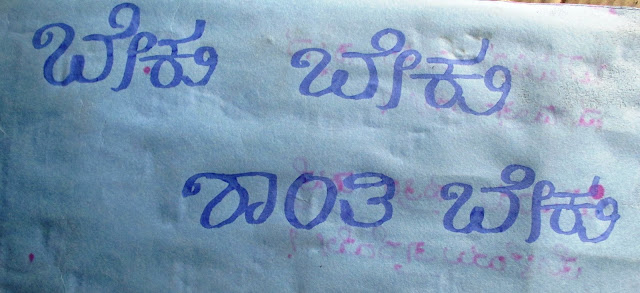 ಬೇಕು ಬೇಕು
ಶಾಂತಿ ಬೇಕು